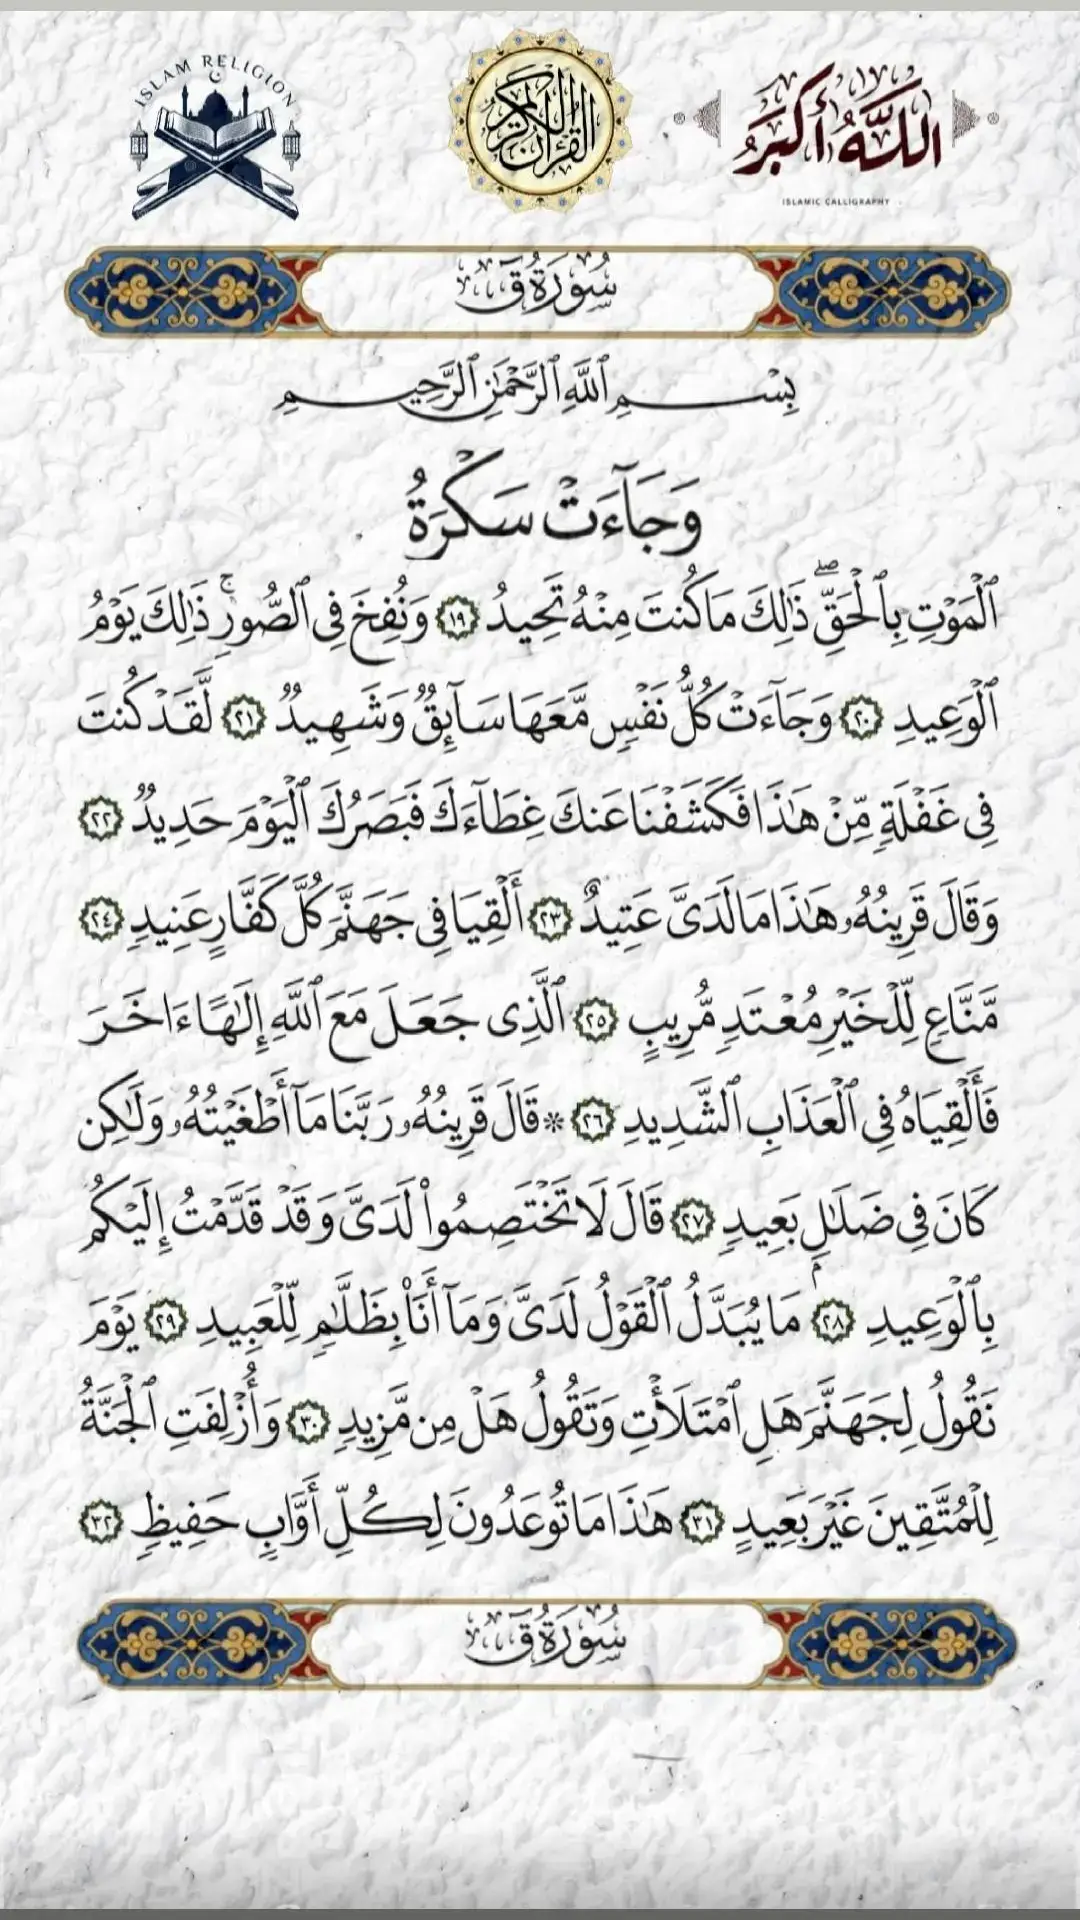 ISLAM RELIGION
القرآن الكريم
اللَّهُ أَكْبَرُ
ISLAMIC CALLIGRAPHY
سُورَةُ ق
بِسْمِ ٱللَّهِ ٱلرَّحْمَٰنِ ٱلرَّحِيمِ
وَجَآءَتْ سَكْرَةُ
ٱلْمَوْتِ بِٱلْحَقِّ ۖ ذَٰلِكَ مَا كُنتَ مِنْهُ تَحِيدُ ١٩ وَنُفِخَ فِى ٱلصُّورِ ۚ ذَٰلِكَ يَوْمُ
ٱلْوَعِيدِ ٢٠ وَجَآءَتْ كُلُّ نَفْسٍ مَّعَهَا سَآئِقٌ وَشَهِيدٌ ٢١ لَّقَدْ كُنتَ
فِى غَفْلَةٍ مِّنْ هَٰذَا فَكَشَفْنَا عَنكَ غِطَآءَكَ فَبَصَرُكَ ٱلْيَوْمَ حَدِيدٌ ٢٢
وَقَالَ قَرِينُهُۥ هَٰذَا مَا لَدَىَّ عَتِيدٌ ٢٣ أَلْقِيَا فِى جَهَنَّمَ كُلَّ كَفَّارٍ عَنِيدٍ ٢٤
مَّنَّاعٍ لِّلْخَيْرِ مُعْتَدٍ مُّرِيبٍ ٢٥ ٱلَّذِى جَعَلَ مَعَ ٱللَّهِ إِلَٰهًا ءَاخَرَ
فَأَلْقِيَاهُ فِى ٱلْعَذَابِ ٱلشَّدِيدِ ٢٦ * قَالَ قَرِينُهُۥ رَبَّنَا مَآ أَطْغَيْتُهُۥ وَلَٰكِن
كَانَ فِى ضَلَٰلٍۭ بَعِيدٍ ٢٧ قَالَ لَا تَخْتَصِمُوا۟ لَدَىَّ وَقَدْ قَدَّمْتُ إِلَيْكُم
بِٱلْوَعِيدِ ٢٨ مَا يُبَدَّلُ ٱلْقَوْلُ لَدَىَّ وَمَآ أَنَا۠ بِظَلَّٰمٍ لِّلْعَبِيدِ ٢٩ يَوْمَ
نَقُولُ لِجَهَنَّمَ هَلِ ٱمْتَلَأْتِ وَتَقُولُ هَلْ مِن مَّزِيدٍ ٣٠ وَأُزْلِفَتِ ٱلْجَنَّةُ
لِلْمُتَّقِينَ غَيْرَ بَعِيدٍ ٣١ هَٰذَا مَا تُوعَدُونَ لِكُلِّ أَوَّابٍ حَفِيظٍ ٣٢
سُورَةُ ق